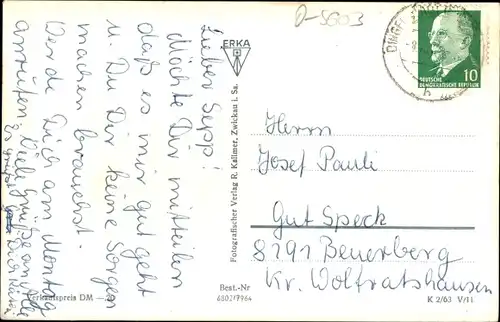 D-5603
Lieber Sepp!
Möchte Dir mitteilen
daß es mir gut geht
u. Du Dir keine Sorgen
machen brauchst.
Werde Dich am Montag
anrufen. Viele Grüße an alle
Es grüßt
Dich
ERKA
Fotografischer Verlag R. Kallmer, Zwickau i. Sa.
Verkaufspreis DM
Best.-Nr
DINGEL
10
DEUTSCHE
DEMOKRATISCHE REPUBLIK
Herrn
Josef Pauli
Gut Speck
8191 Beuerberg
Kr. Wolfratshausen
K 2/63 V/11